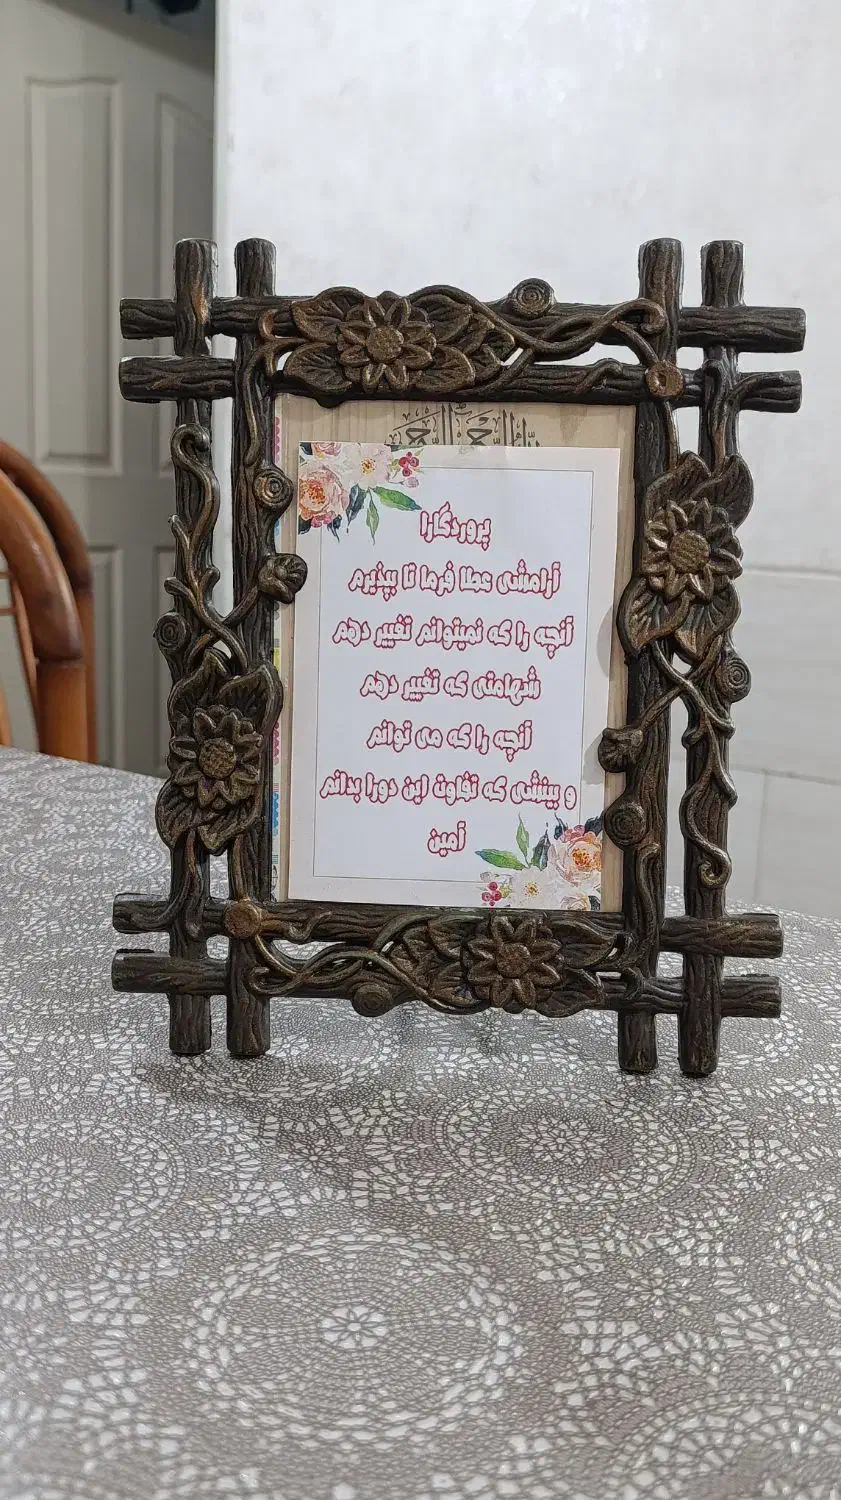 الرحمن الرحیم
پروردگارا
آرامشی عطا فرما تا بپذیرم
آنچه را که نمیتوانم تغییر دهم
شهامتی که تغییر دهم
آنچه را که می توانم
و بینشی که تفاوت این دورا بدانم
آمین